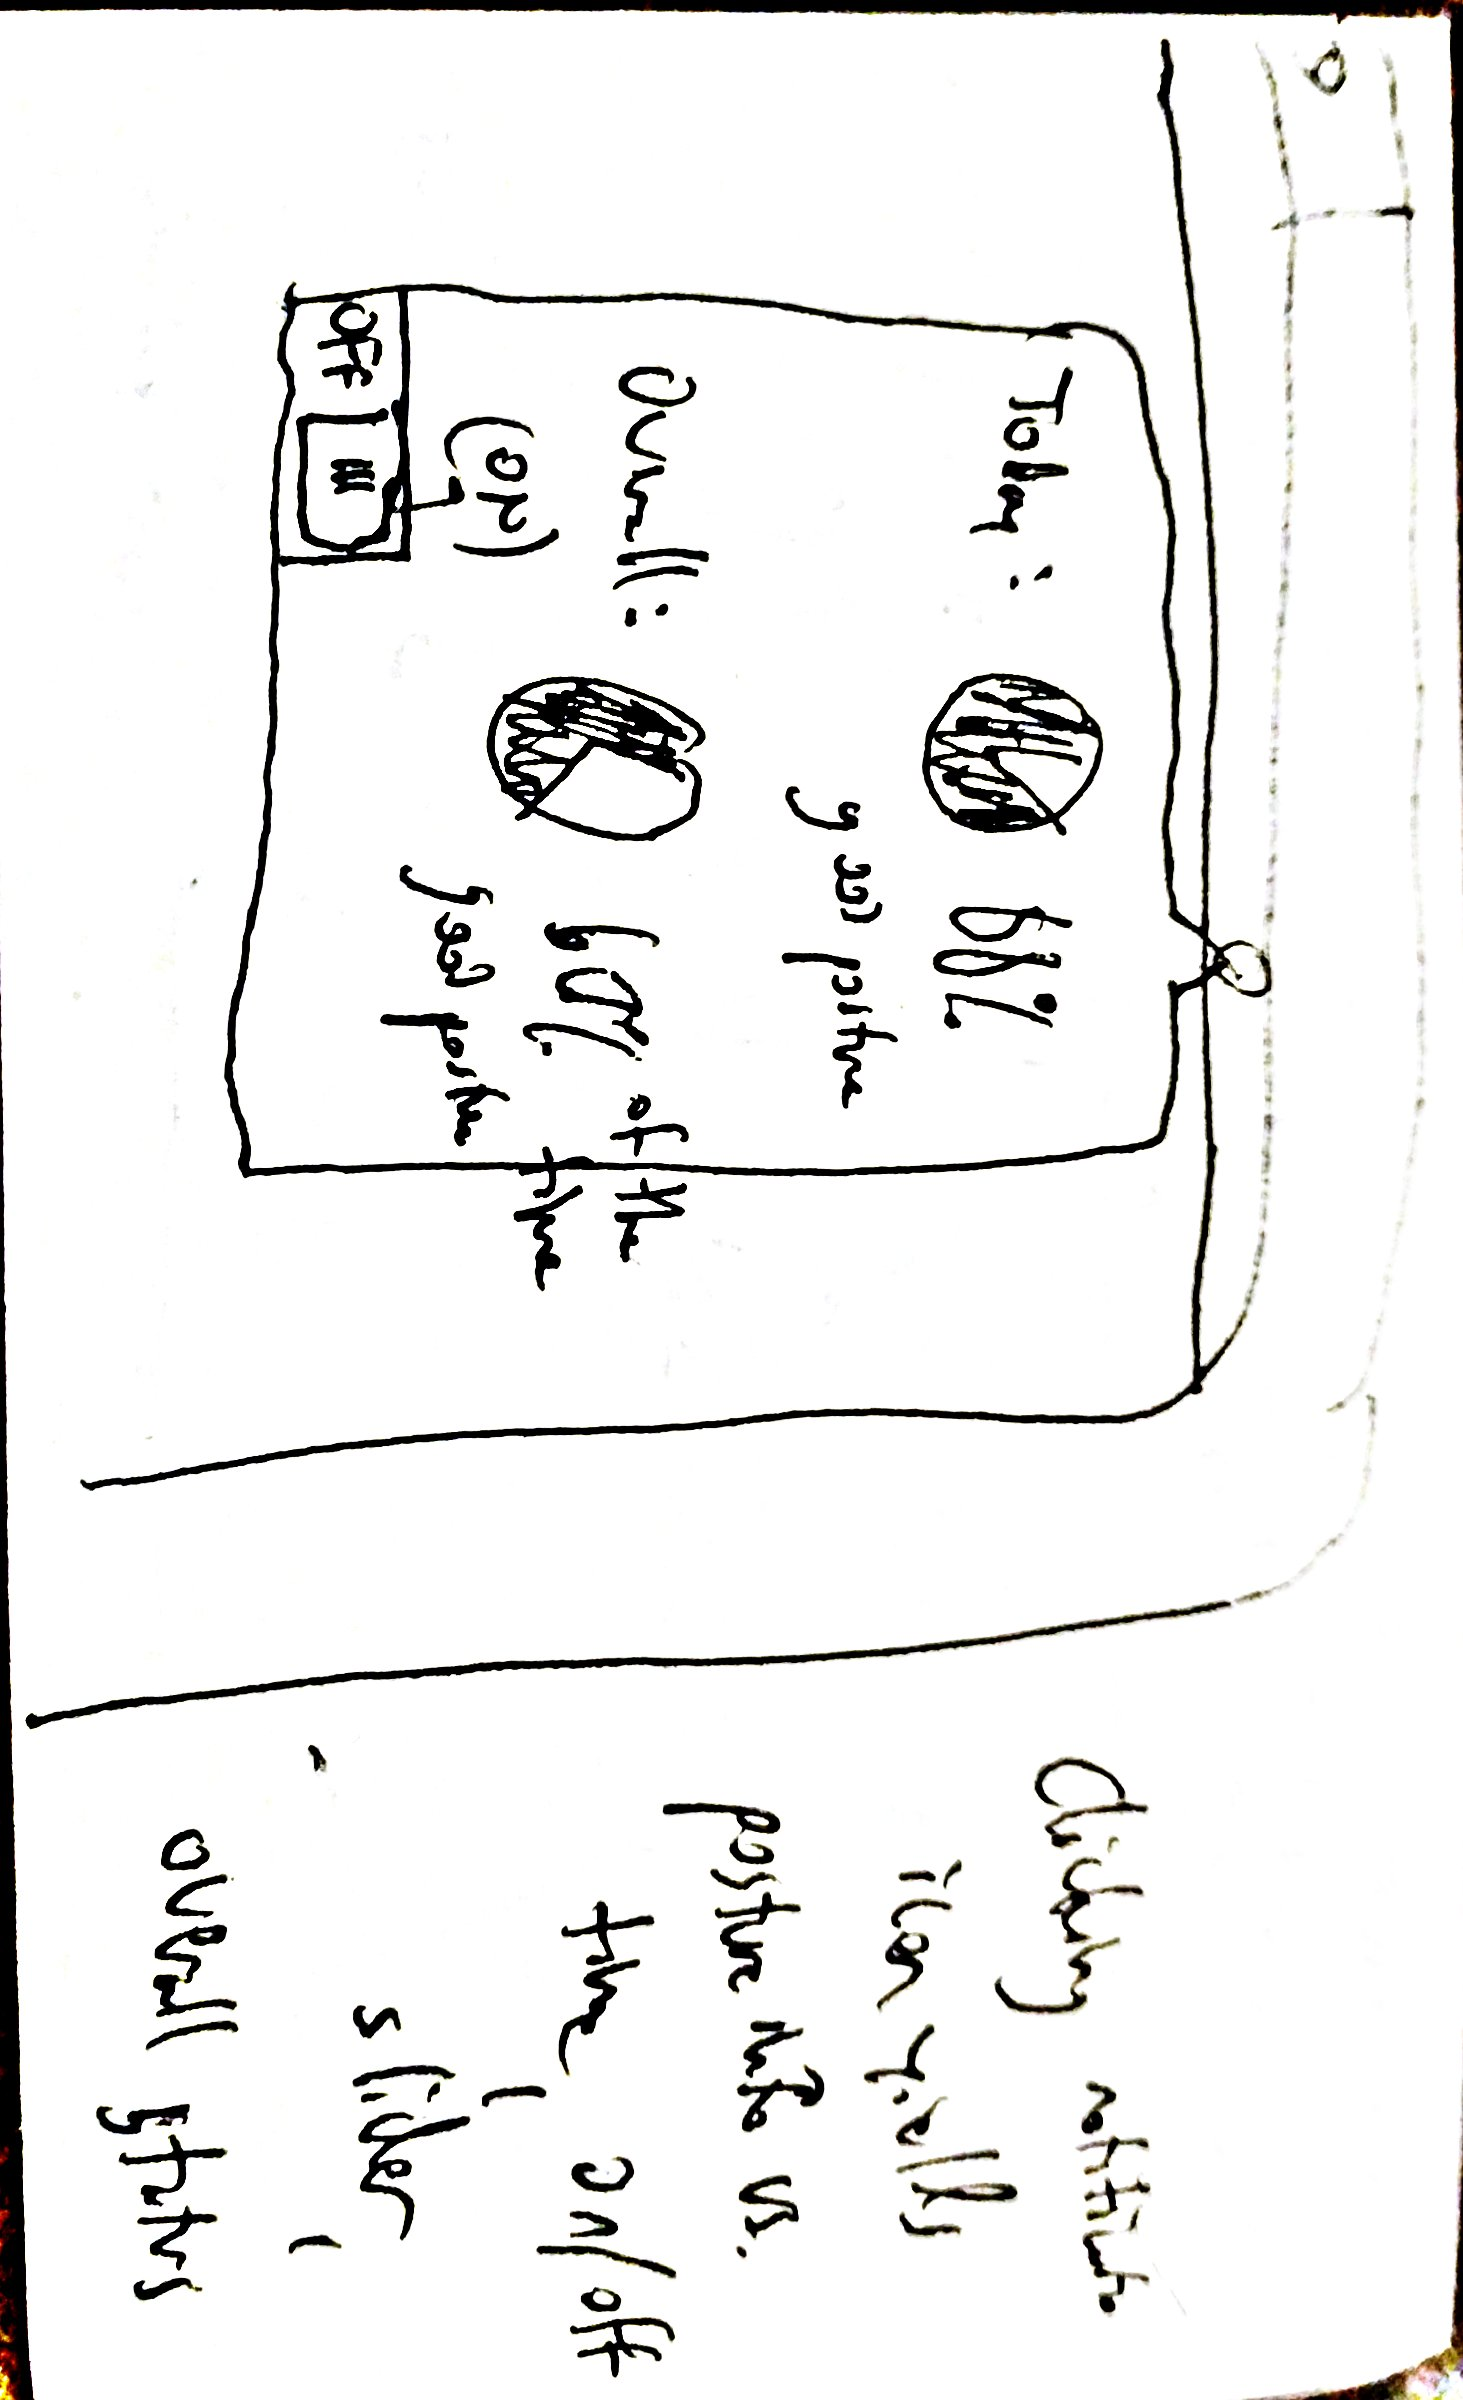 Today:
68%
good posture
Overall:
60% of the
time
good posture
(ON)
OFF
Clicking notification
icon pulls
posture info vs.
time, on/off
slider,
overall status